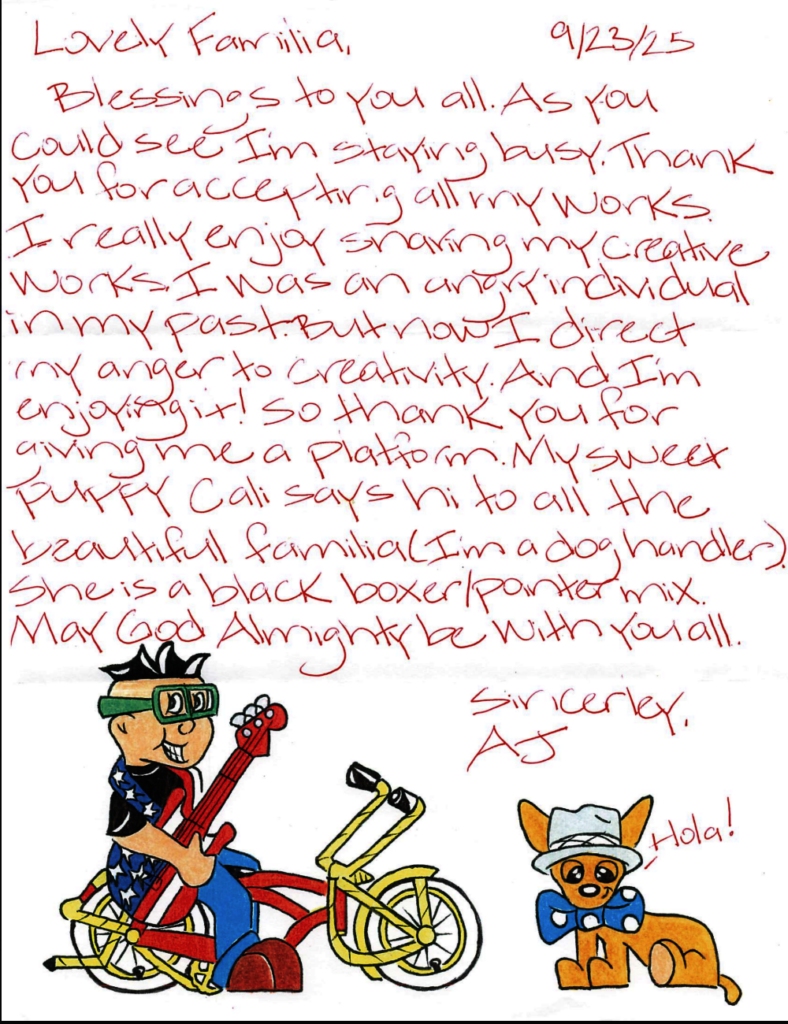 Lovely Familia, 9/23/25
Blessings to you all. As you
could see I'm staying busy. Thank
you for accepting all my works.
I really enjoy sharing my creative
works. I was an angry individual
in my past. But now I direct
my anger to creativity. And I'm
enjoying it! So thank you for
giving me a platform. My sweet
puppy Cali says hi to all the
beautiful familia (I'm a dog handler).
She is a black boxer/pointer mix.
May God Almighty be with you all.
Sincerley,
AJ
Hola!